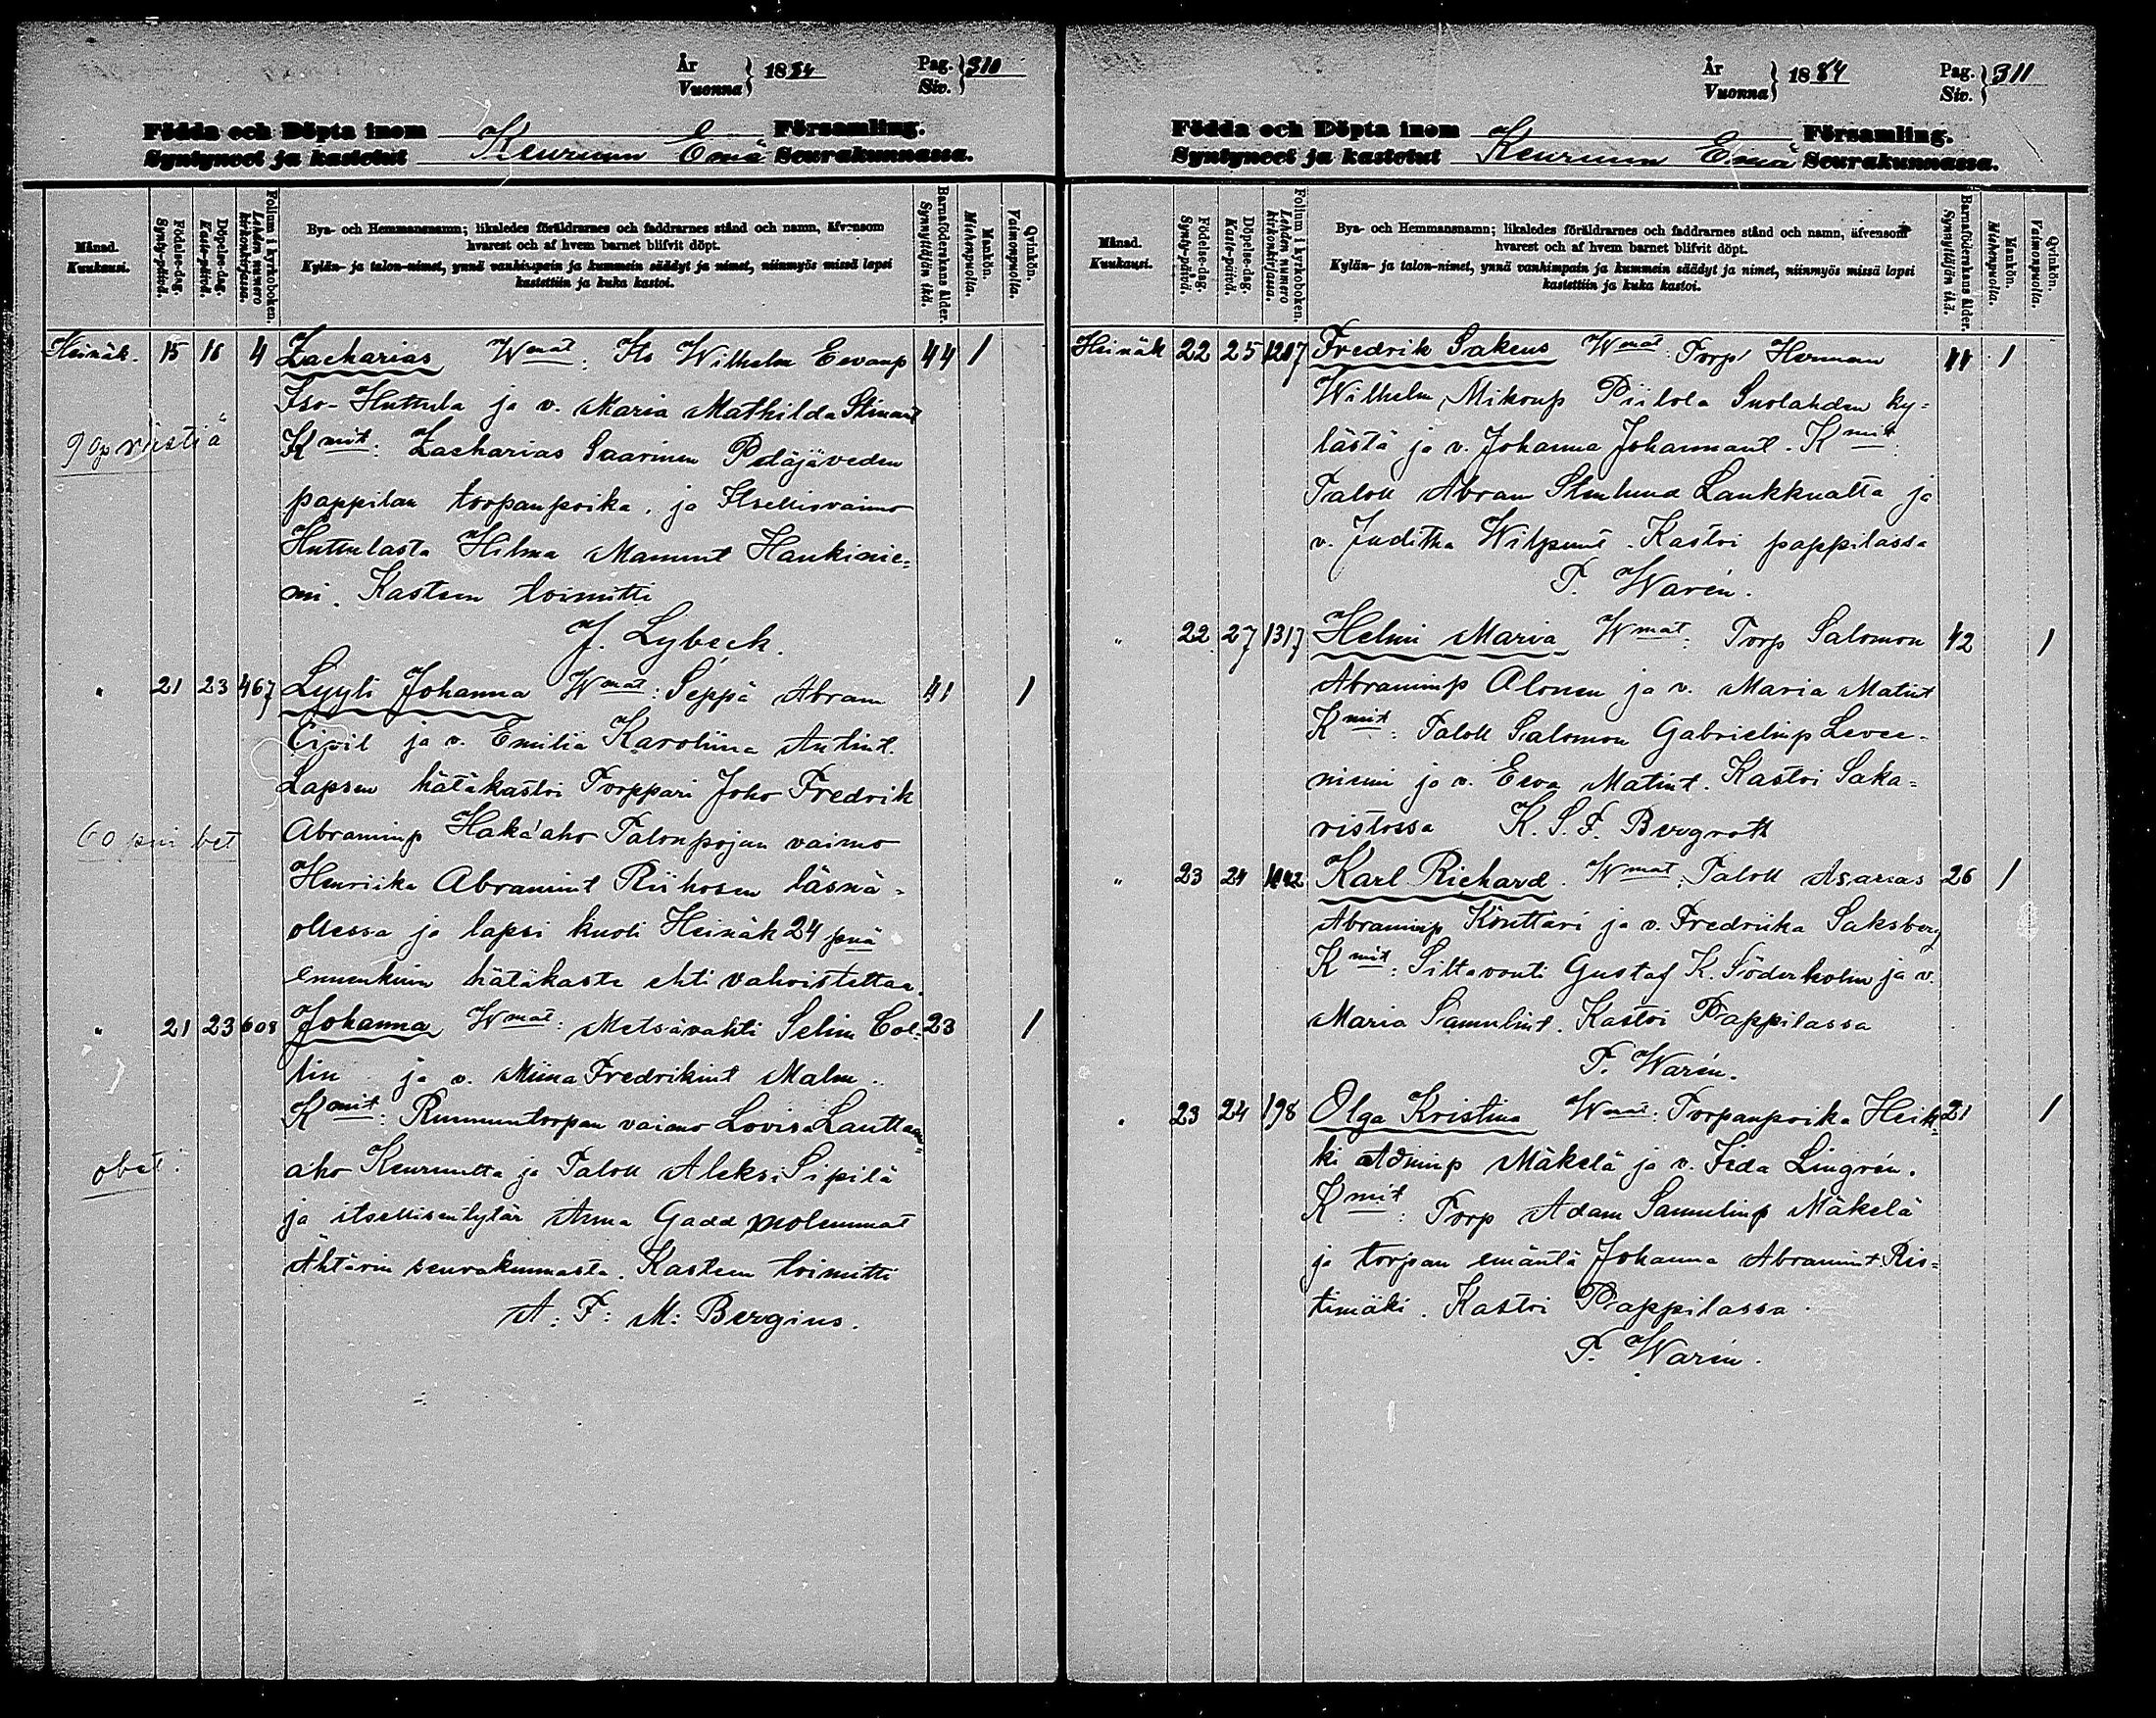 År
Vuonna } 1884
Pag.
Siv. } 310
Födda och Döpta inom Keuruun Emä Församling.
Syntyneet ja kastetut Seurakunnassa.
Månad.
Kuukausi.
Födelse-dag.
Synty-päivä.
Döpelse-dag.
Kaste-päivä.
Folium i kyrkoboken.
Lehden numero kirkonkirjassa.
Bya- och Hemmansnamn; likaledes föräldrarnes och faddrarnes stånd och namn, äfvensom
hvarest och af hvem barnet blifvit döpt.
Kylän- ja talon-nimet, ynnä vanhimpain ja kummein säädyt ja nimet, niinmyös missä lapsi
kastettiin ja kuka kastoi.
Barnaföderskans ålder.
Synnyttäjän ikä.
Mankön.
Miehenpuolia.
Qvinkön.
Vaimonpuolia.
Heinäk. 15 16 4 Zacharias Wmat: Its Wilhelm Eevanp 44 1
Iso-Huttula ja v. Maria Mathilda
Kmit: Zacharias Saarinen Petäjäveden
pappilan torpanpoika, ja Itsellisvaimo
Huttulasta Hilma Mannunt Haukinie=
mi. Kasteen toimitti
J. Lybeck.
" 21 23 467 Lyyli Johanna Wmat: Seppä Abram 41 1
Civil ja v. Emilia Karoliina Antint.
Lapsen hätäkastoi Torppari Joho Fredrik
60 pni bet Abraminp Haka'aho Talonpojan vaimo
Henriika Abramint Riihosen läsnä-
ollessa ja lapsi kuoli Heinäk 24 pnä
ennenkuin hätäkaste ehti vahvistettaa.
" 21 23 608 Johanna Wmat: Metsävahti Selim Col= 23 1
lin ja v. Miina Fredrikint Malm.
Kmit: Rummuntorpan vaimo Lovisa
aho Keuruulta ja Taloll Aleksi Sipilä
ja itsellisentytär Anna Gadd molemmat
Ähtärin seurakunnasta. Kasteen toimitti
A: F: M: Bergius.
År
Vuonna } 1884
Pag.
Siv. } 311
Födda och Döpta inom Keuruun Emä Församling.
Syntyneet ja kastetut Seurakunnassa.
Månad.
Kuukausi.
Födelse-dag.
Synty-päivä.
Döpelse-dag.
Kaste-päivä.
Folium i kyrkoboken.
Lehden numero kirkonkirjassa.
Bya- och Hemmansnamn; likaledes föräldrarnes och faddrarnes stånd och namn, äfvensom
hvarest och af hvem barnet blifvit döpt.
Kylän- ja talon-nimet, ynnä vanhimpain ja kummein säädyt ja nimet, niinmyös missä lapsi
kastettiin ja kuka kastoi.
Barnaföderskans ålder.
Synnyttäjän ikä.
Mankön.
Miehenpuolia.
Qvinkön.
Vaimonpuolia.
Heinäk 22 25 1207 Fredrik Sakeus Wmat: Torp Herman 1
Wilhelm Mikonp Piilola Suolahden ky=
lästä ja v. Johanna Johannant. Kmit:
Taloll Abram Stenlund Laukkualta ja
v. Juditha Wilpunt. Kastoi pappilassa
F. Warén.
" 22 27 1317 Helmi Maria Wmat: Torp Salomon 42 1
Abraminp Alonen ja v. Maria Matint
Kmit: Taloll Salomon Gabrielinp Levee-
niemi ja v. Eeva Matint. Kastoi Saka=
ristossa K. S. F. Bergroth
" 23 24 Karl Richard. Wmat: Taloll Asarias 26 1
Abraminp Könttäri ja v. Fredriika Saksberg
Kmit: Siltavouti Gustaf K. Söderholm ja v.
Maria Samulint. Kastoi Pappilassa
F. Warén.
" 23 24 198 Olga Kristina Wmat: Torpanpoika Heik= 21 1
ki Adminp Mäkelä ja v. Iida Lingrén.
Kmit: Torp Adam Samulinp Mäkelä
ja torpan emäntä Johanna Abramint Ris=
timäki. Kastoi Pappilassa.
F. Warén.